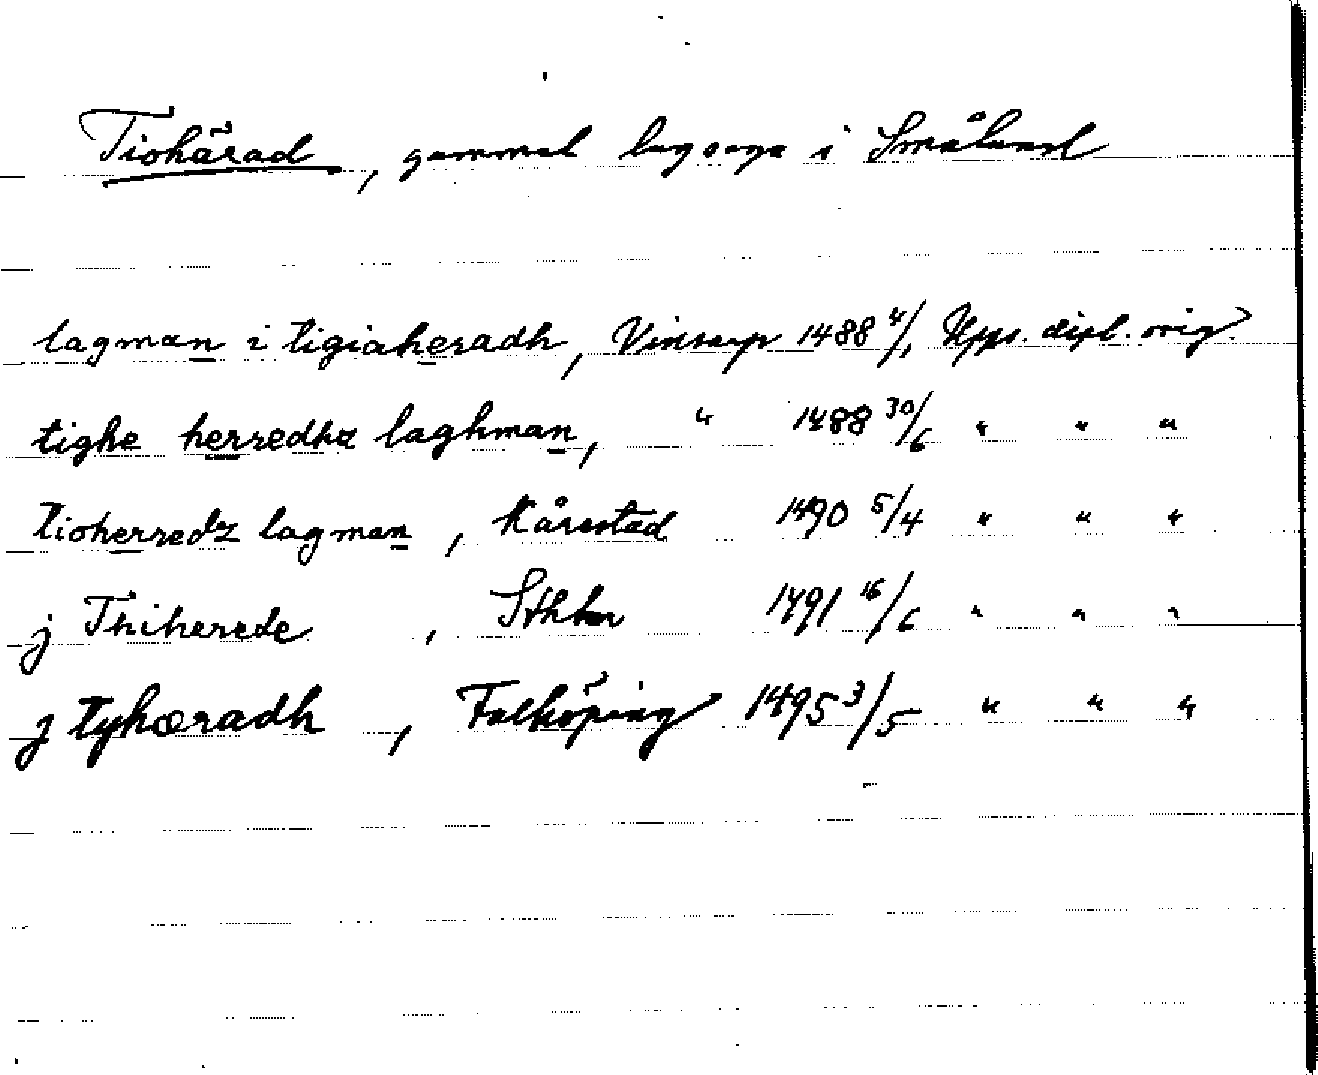 Tiohärad, gammal lagsaga i Småland
lagman i tigiaheradh, Vinsarp 1488 4/1, Upps. dipl. orig.
tighe herredhz laghman, " 1488 30/6 " " "
tioherredz lagman, Kårestad 1490 5/4 " " "
j Thiherede, Sthlm 1491 16/6 " " "
j tyhæradh, Falköping 1495 3/5 " " "